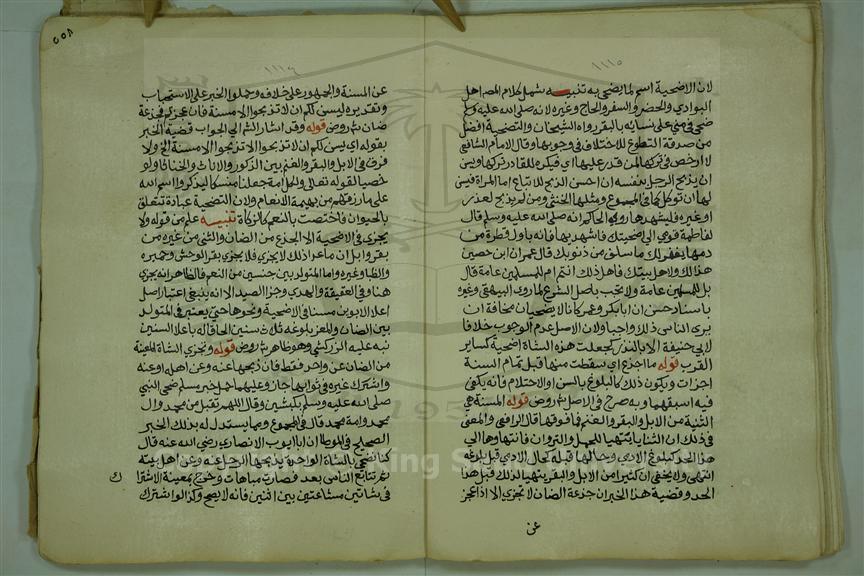 ١١١٥
لان الاضحية اسم لما يضحى به تنبيه شمل كلام المص اهل
البوادي والحضر والسفر والحاج وغيره لانه صلى الله عليه وسلم
ضحى في منى على نسائه بالبقر رواه الشيخان والتضحية افضل
من صدقة التطوع للاختلاف في وجوبها وقال الامام الشافعي
لا ارخص في تركها لمن قدر عليها اي فيكره للقادر تركها ويسن
ان يذبح الرجل بنفسه ان احسن الذبح للاتباع اما المراة فيسن
لها ان توكل كما في المجموع ومثلها الخنثى ومن لم يذبح لعذر
او غيره فليشهدها روى الحاكم انه صلى الله عليه وسلم قال
لفاطمة قومي الى اضحيتك فاشهديها فانه باول قطرة من
دمها يغفر لك ما سلف من ذنوبك قال عمران ابن حصين
هذا لك ولاهل بيتك فاهل ذلك انتم ام للمسلمين عامة قال
بل للمسلمين عامة ولا تجب باصل الشرع لما روى البيهقي وغيره
باسناد حسن ان ابا بكر وعمر كانا لا يضحيان مخافة ان
يرى الناس ذلك واجبا ولان الاصل عدم الوجوب خلافا
لابي حنيفة الا بالنذر كجعلت هذه الشاة اضحية كساير
القرب قوله ما اجذع اي سقطت سنها قبل تمام السنة
اجزات ويكون ذلك كالبلوغ بالسن او الاحتلام فانه يكفي
فيه اسبقهما وبه صرح في الاصل شروض قوله المسنة هي
الثنية من الابل والبقر والغنم فما فوقها قال الرافعي والمعنى
في ذلك ان الثنايا يتهيا للحمل والنزوان فانتهاوها الى
هذا الحد كبلوغ الادمي وحالها قبله كحال الادمي قبل بلوغه
انتهى ولا يخفى ان كثيرا من الابل والبقر يتهيا لذلك قبل هذا
الحد وقضية هذا الخبر ان جذعة الضان لا تجزي الا اذا عجز
عن
٥٥٨
١١١٦
عن المسنة والجمهور على خلافه وحملوا الخبر على الاستحباب
وتقديره ليسن لكم ان لا تذبحوا الا مسنة فان عجزتم فجذعة
ضان شروض قوله وقد اشار الشم الى الجواب قضية الخبر
بقوله اي يسن لكم ان لا تذبحوا الا تذبحوا الا مسنة الخ ولا
فرق في الابل والبقر والغنم بين الذكور والاناث والخناثا ولو
خصيا لقوله تعالى ولكل امة جعلنا منسكا ليذكروا اسم الله
على ما رزقهم من بهيمة الانعام ولان التضحية عبادة تتعلق
بالحيوان فاختصت بالنعم كالزكاة تنبيه علم من قوله ولا
يجزي في الاضحية الا الجذع من الضان والثني من غيره من
بقر وابل ان ما عدا ذلك لا يجزي فلا يجزي بقر الوحش وحميره
والظبا وغيره واما المتولد بين جنسين من النعم فالظاهر انه يجزي
هنا وفي العقيقة والهدي وجزا الصيد الا انه ينبغي اعتبار اصل
اعلا الابوين سنا في الاضحية ونحوها حتى يعتبر في المتولد
بين الضان والمعز بلوغه ثلاث سنين الحاقا له باعلا السنين
نبه عليه الزركشي وهو ظاهر شروض قوله وتجزي الشاة المعينة
من الضان عن واحد فقط فان ذبحها عنه وعن اهله او عنه
واشترك غيره في ثوابها جاز وعليهما حمل خبر مسلم ضحى النبي
صلى الله عليه وسلم بكبشين وقال اللهم تقبل من محمد وال
محمد وامة محمد قال في المجموع ومما يستدل له بذلك الخبر
الصحيح في الموطا ان ابا ايوب الانصاري رضي الله عنه قال
كنا نضحي بالشاة الواحدة يذبحها الرجل عنه وعن اهل بيته
ثم تتابع الناس بعد فصارت مباهات وخرج بمعينة الاشترا ك
في شاتين مشاعتين بين اثنين فانه لا يصح وكذا لو اشترك